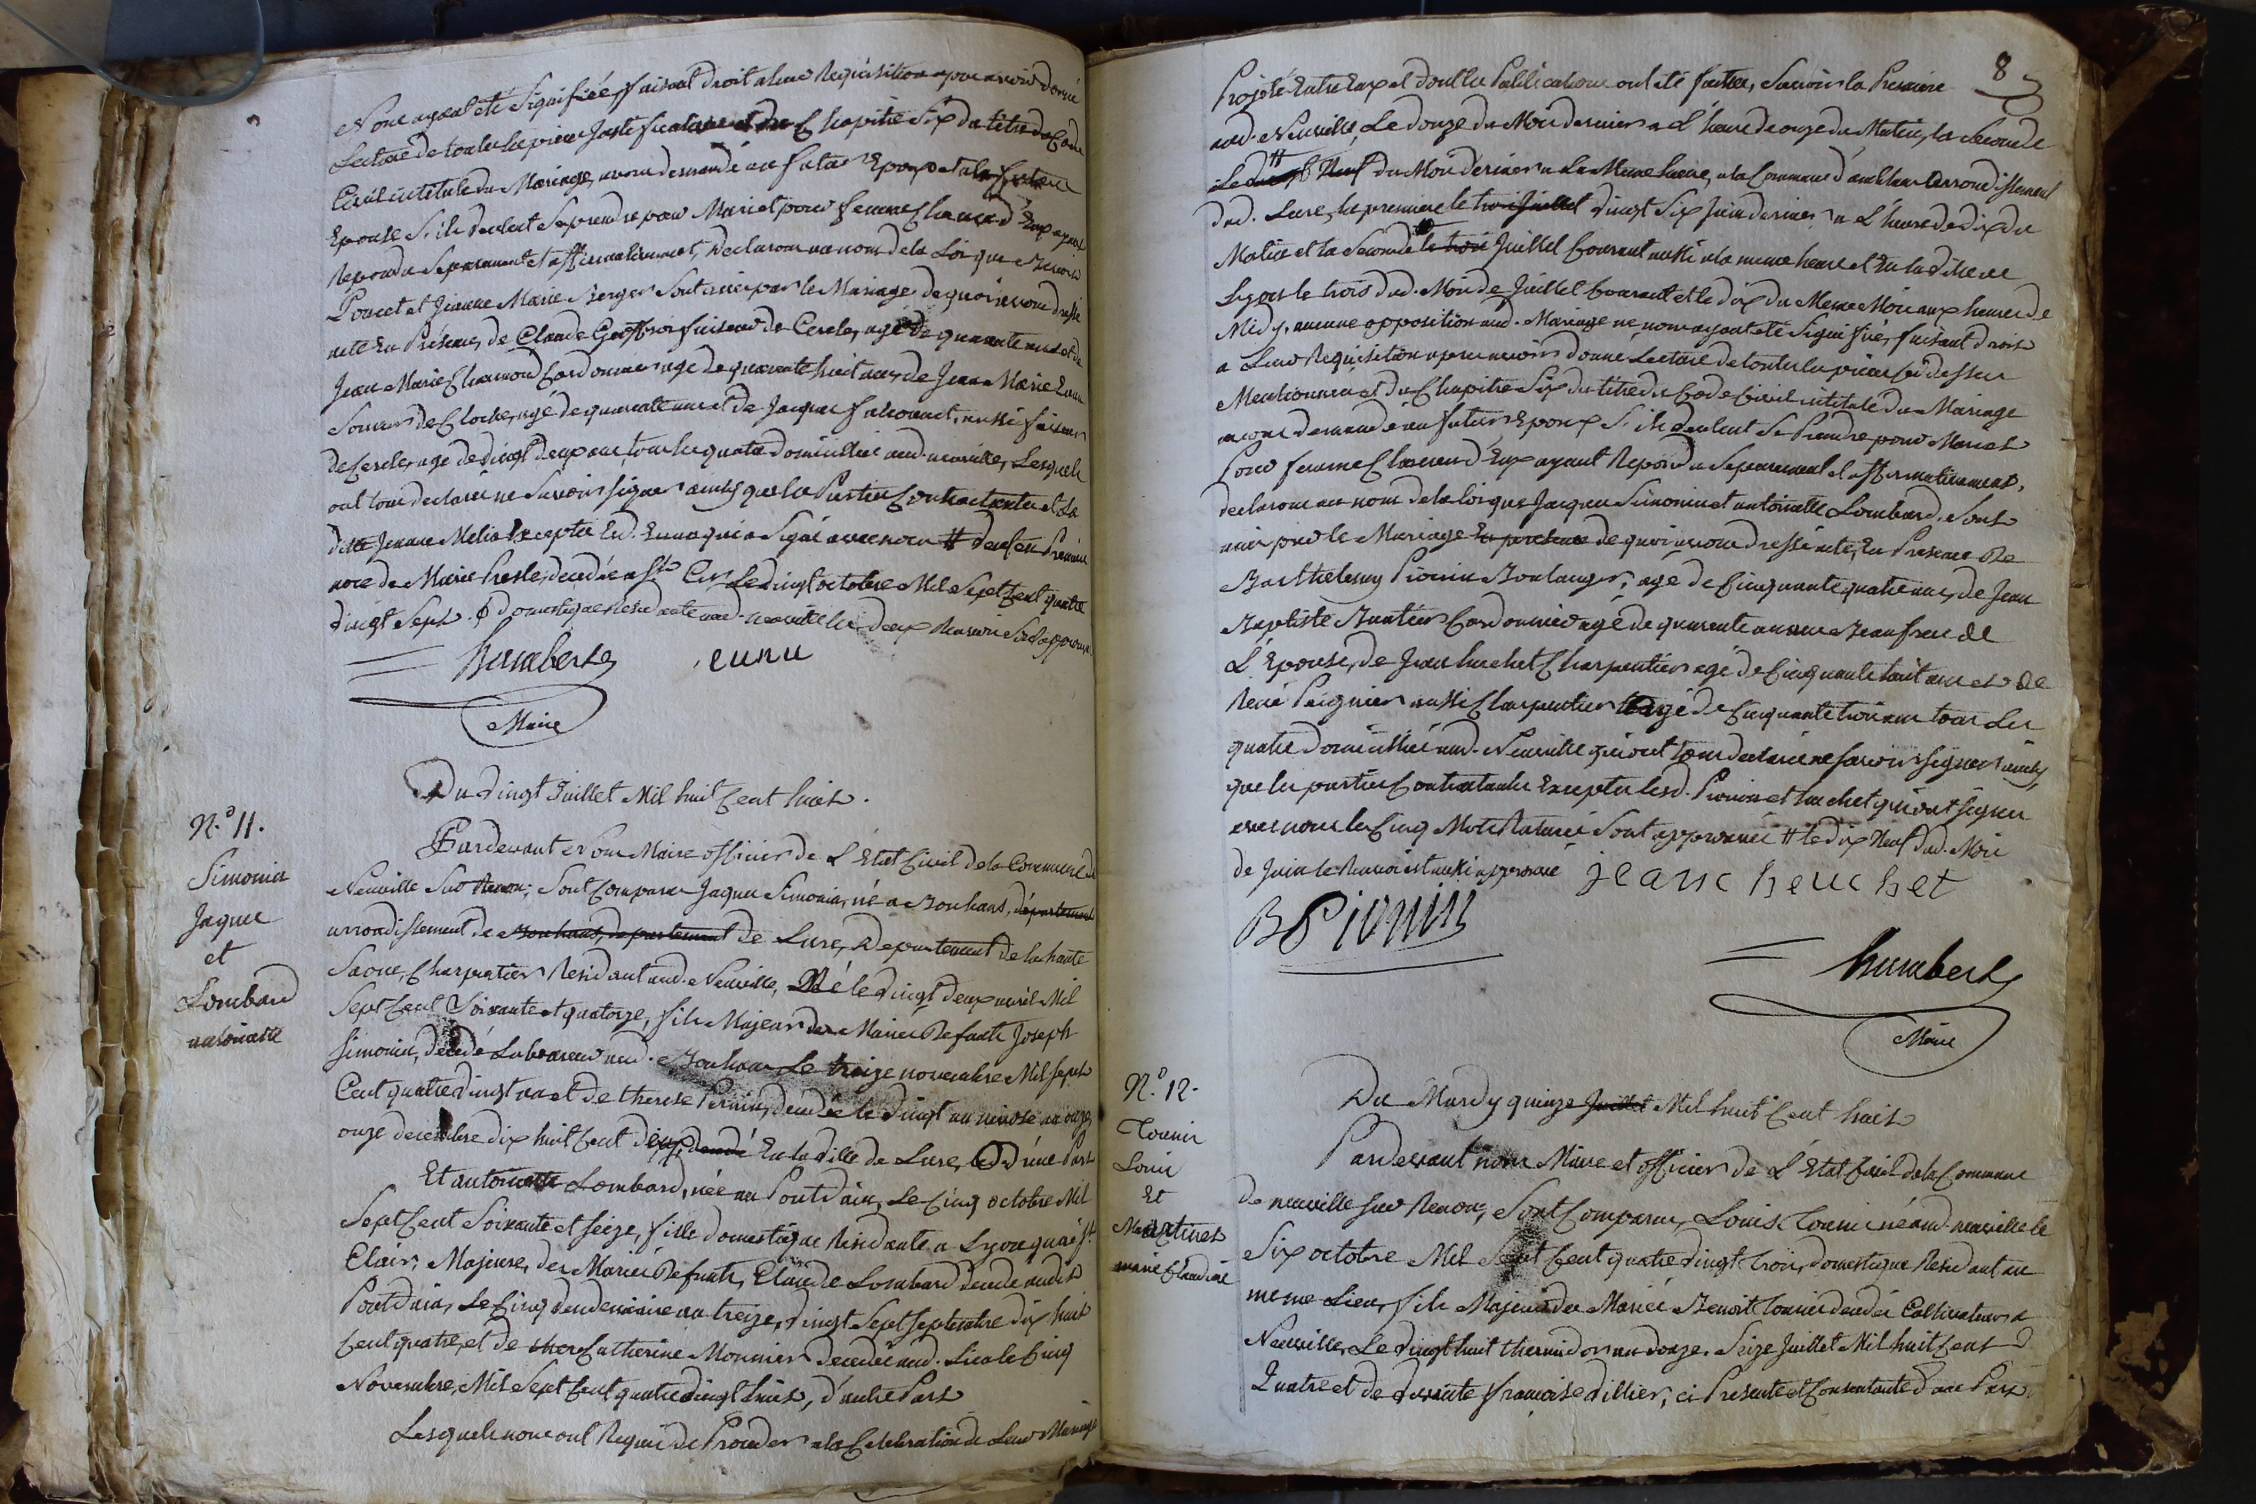 Nous ayant eté Signifiée, faisant droit a leur Requisition apres avoir donné
Lecture de toutes les pieces Justificatives et du Chapitre Six du titre du Code
Civil intitulé du Mariage, avons demandé au futur Epoux et a la future
Epouse S'ils veulent Se prendre pour Mari et pour femme, Chacun d'Eux ayant
Repondu Separement et affirmativement, Declarons au nom de la Loi que Benoit
Poncet et Jeanne Marie Berger Sont unis par le Mariage de quoi avons dressé
acte En Présence, de Claude Geoffroi faiseur de Cercle, agé de quarante ans et de
Jean Marie Chamond Cordonnier agé de quarante huit ans, de Jean Marie Eunu
Sonneur de Cloche, agé de quarante ans et de Jacque falconnet, aussi faiseur
de Cercle, age de vingt deux ans, tous les quatre domiciliés aud. neuville, Lesquels
ont tous declaré ne Savoir signer ainsy que les Parties Contractantes et la
dite Jeanne Melio Excepté Led. Eunu qui a Signé avec nous # veuf en Premiere
noce de Marie Presle, decedée a St. Cir Le vingt octobre Mil Sept Cent quatre
vingt Sept. ϕ domestique residante aud. neuville les deux Renvois Sont approuvés
humbert eunu
Maire
Du vingt Juillet Mil huit Cent huit.
N.º 11.
Simonin
Jaque
et
Lombard
antoinette
Pardevant Nous Maire officier de L'Etat Civil de la Commune de
Neuville Sur Renon, Sont Comparus Jaque Simonin, né a Bouhans, département
arrondissement de Bouhans, departement de Lure, Departement de la haute
Saone, Charpentier Residant aud. Neuville, Né le vingt deux avril Mil
Sept Cent Soixante et quatorze, fils Majeur des Mariés Defunts Joseph
Simonin, décédé Laboureur aud. Bouhans Le treize novembre Mil Sept
Cent quatre vingt un et de therese Pernin, decedée le vingt un nivose an onze
onze decembre dix huit Cent deux, decedé En la ville de Lure, led. d'une Part
Et antoinette Lombard, née au Pont dain, Le Cinq octobre Mil
Sept Cent Soixante et Seize, fille domestique Residante a Lyon quai St.
Clair, Majeure, des Mariés Defunts, Claude Lombard decedé audit
Pont dain, Le Cinq vendemiaire an treize, vingt Sept Septembre dix huit
Cent quatre, et de there Catherine Monnier decedée aud. Lieu le Cinq
Novembre, Mil Sept Cent quatre vingt huit, d'autre Part
Lesquels nous ont Requis de Proceder a la Celebration de Leur Mariage
8
Projeté Entre Eux et dont les Publications ont été faittes, Savoir la Premiere
aud. Neuville, Le douze du Mois dernier a L'heure de onze du Matin, la Seconde
Le dix Neuf du Mois dernier a La Meme heure, a la Commune d'amblans arrondissement
dud. Lure, la premiere le trois Juillet vingt Six Juin dernier, a L'heure de dix du
Matin et la Seconde le trois Juillet Courant aussi a la meme heure et En la ville de
Lyon le trois dud. Mois de Juillet Courant et le dix du Meme Mois aux heures de
Midy, aucune opposition aud. Mariage ne nous ayant eté Signifiée, faisant droit
a Leur Requisition apres avoir donné Lecture de toutes les pieces Ci dessus
Mentionnées et du Chapitre Six du titre du Code Civil intitulé du Mariage
avons demandé au futur Epoux S'ils veulent Se Prendre pour Mari et
Pour femme Chacun d'Eux ayant Repondu Separement et affirmativement,
declarons au nom de la loi que Jacque Simonin et antoinette Lombard, Sont
unis par le Mariage En presence de quoi avons dressé acte, En Presence de
Barthelemy Pionin Boulanger, agé de Cinquante quatre ans, de Jean
Baptiste Buatier Cordonnier agé de quarante ans Beaufrere de
L'Epouse, de Jean huchet Charpentier agé de Cinquante huit ans et de
René Peignier aussi Charpentier agé de Cinquante trois ans tous Les
quatre domiciliés aud. Neuville qui ont tous declaré ne Savoir signer ainsy
que les parties Contractantes Exceptés lesd. Pionin et huchet qui ont signés
avec nous les Cinq Mots Raturés Sont approuvés # le dix Neuf dud. Mois
de Juin le Renvoi est aussi approuvé jean heuchet
B Pionin
humbert
Maire
N.º 12.
Tonnir
Louis
Et
marie Claudine
Du Mardy quinze Juillet Mil huit Cent huit
Pardevant nous Maire et officier de L'Etat Civil de la Commune
de neuville Sur Renon, Sont Comparus, Louis Tonnir né aud. neuville le
Six octobre Mil Sept Cent quatre vingt trois, domestique Residant au
meme Lieu, fils Majeur des Mariés Benoit Tonnir decedé Cultivateur a
Neuville, Le vingt huit thermidor an douze, Seize Juillet Mil huit Cent
Quatre et de vivante françoise villier, ci Presente et Consentante d'une Part